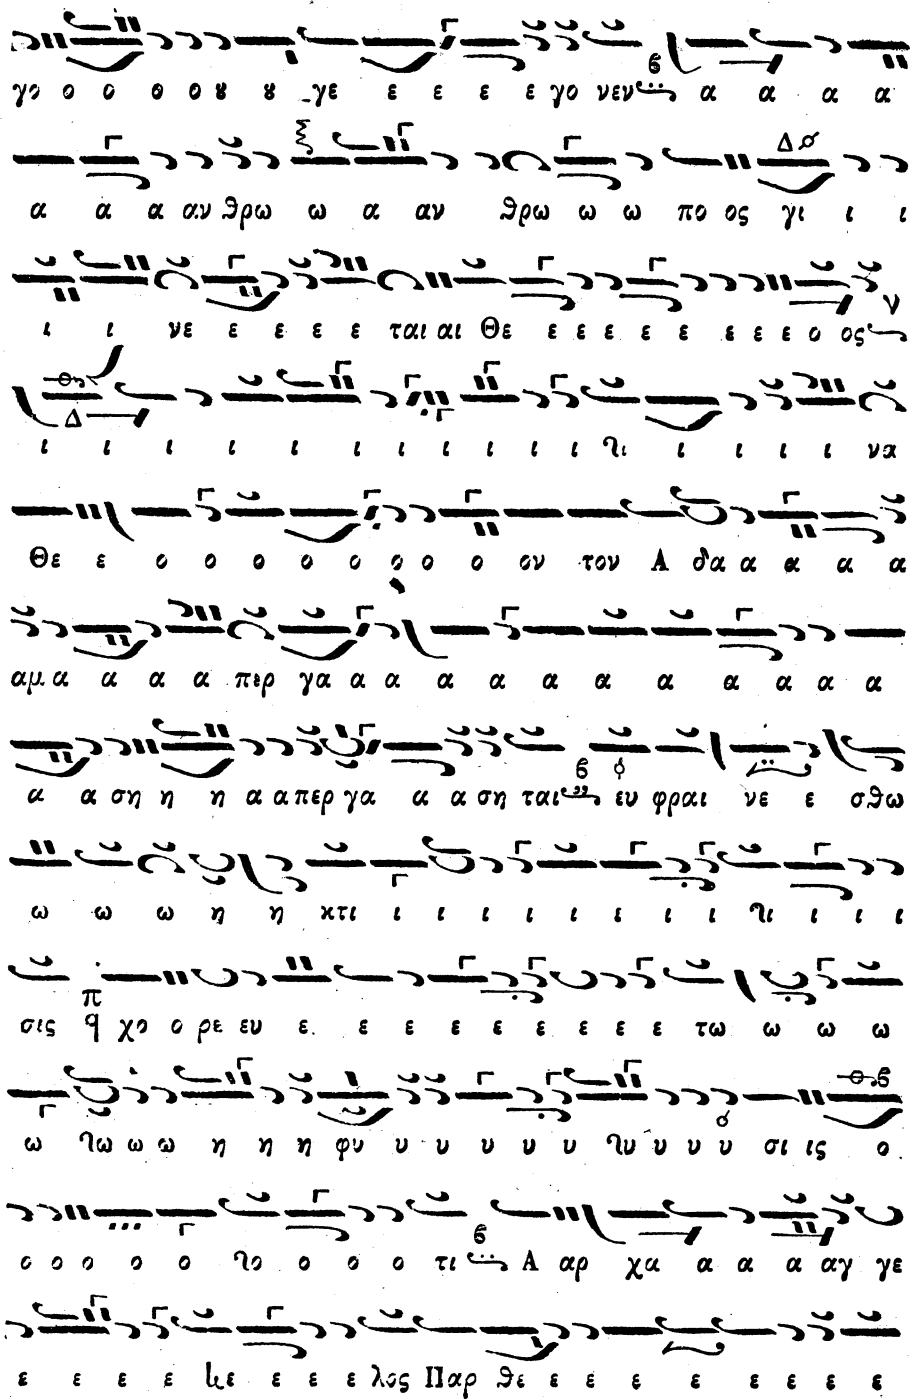 γο ο ο ο ου ου γε ε ε ε ε γο νεν α α α α
α α α αν θρω ω α αν θρω ω ω πο ος γι ι ι
ι ι νε ε ε ε ε ται αι Θε ε ε ε ε ε ε ε ε ο ος
ι ι ι ι ι ι ι ι ι ι ι ι ι ι ι ι ι να
Θε ε ο ο ο ο ο ο ο ο ον τον Α δα α α α α
αμ α α α α περ γα α α α α α α α α α α α
α α ση η η α α περ γα α α ση ται ευ φραι νε ε σθω
ω ω ω η η κτι ι ι ι ι ι ι ι ι ι ι
σις χο ο ρε ευ ε ε ε ε ε ε ε ε ε τω ω ω ω
ω ω ω η η η φυ υ υ υ υ υ υ υ υ σι ις ο
ο ο ο ο ο ο ο ο τι Α αρ χα α α α αγ γε
ε ε ε ε ε ε ε λος Παρ θε ε ε ε ε ε ε ε ε